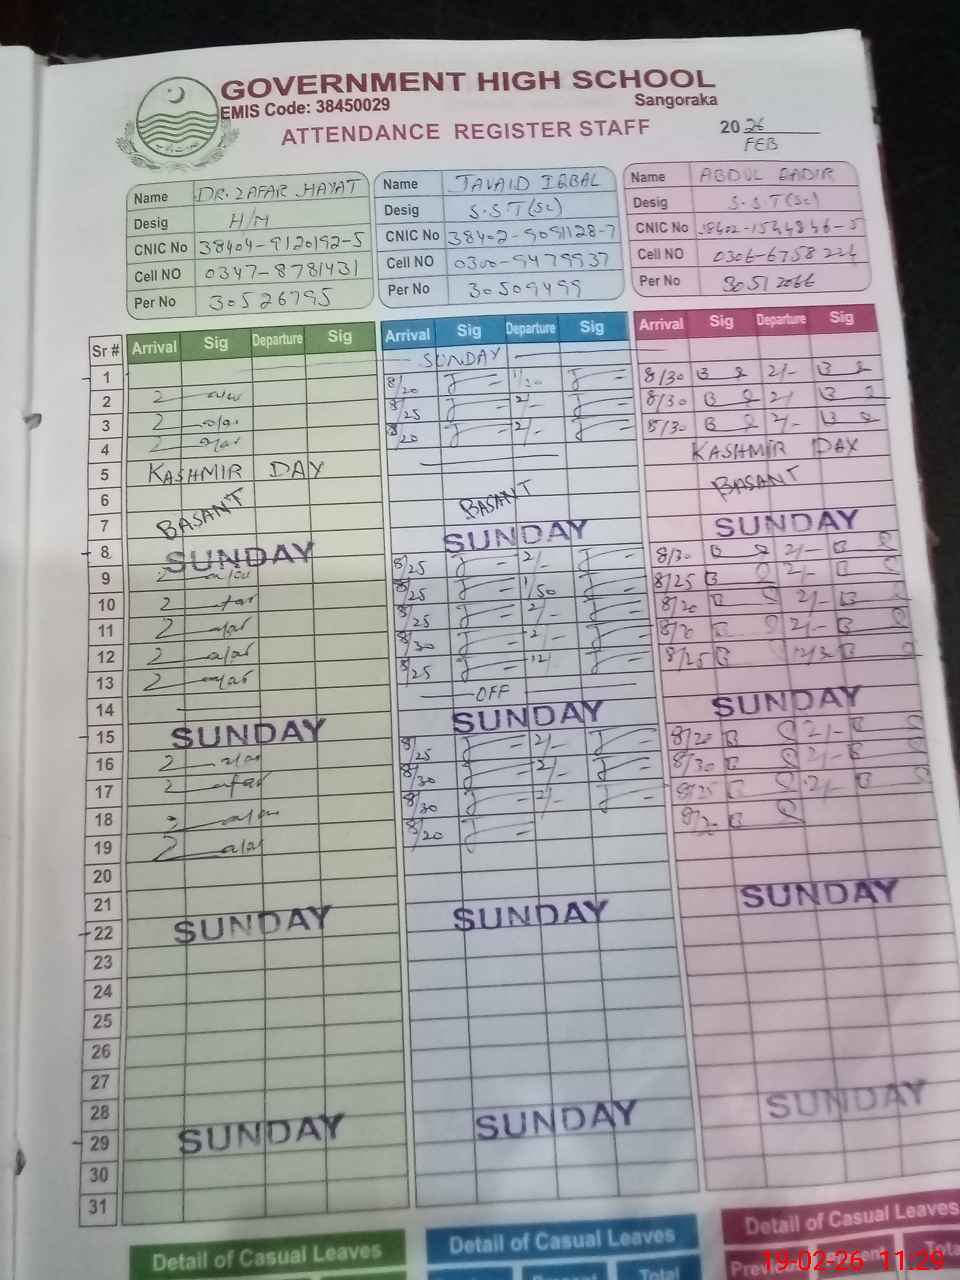 GOVERNMENT HIGH SCHOOL
EMIS Code: 38450029
Sangoraka
ATTENDANCE REGISTER STAFF
2026
FEB
Name DR. ZAFAR HAYAT
Desig H/M
CNIC No 38404-9120192-5
Cell NO 0347-8781431
Per No 30526795
Name JAVAID IQBAL
Desig S.S.T(Sc)
CNIC No 38402-9091128-7
Cell NO 0300-9479937
Per No 30509499
Name ABDUL QADIR
Desig S.S.T(Sc)
CNIC No 38402-1544846-5
Cell NO 0306-6758224
Per No 30512066
Sr # Arrival Sig Departure Sig Arrival Sig Departure Sig Arrival Sig Departure Sig
1 SUNDAY
2 8/20 1/20 8/30 2/-
3 8/25 2/- 8/30 2/
4 8/20 2/- 8/30 2/-
5 KASHMIR DAY KASHMIR DAY
6 BASANT BASANT BASANT
7
8 SUNDAY SUNDAY SUNDAY
9 8/25 2/- 8/30 2/-
10 8/25 1/50 8/25 2/-
11 8/25 2/- 8/20 2/-
12 8/30 2/- 8/20 2/-
13 8/25 12/ 8/25
14 OFF
15 SUNDAY SUNDAY SUNDAY
16 8/25 2/- 8/20 2/-
17 8/30 2/- 8/30 2/-
18 8/30 2/- 8/25 2/-
19 8/20 8/20
20
21
22 SUNDAY SUNDAY SUNDAY
23
24
25
26
27
28
29 SUNDAY SUNDAY SUNDAY
30
31
Detail of Casual Leaves Detail of Casual Leaves Detail of Casual Leaves
Total
19-02-26 11:29